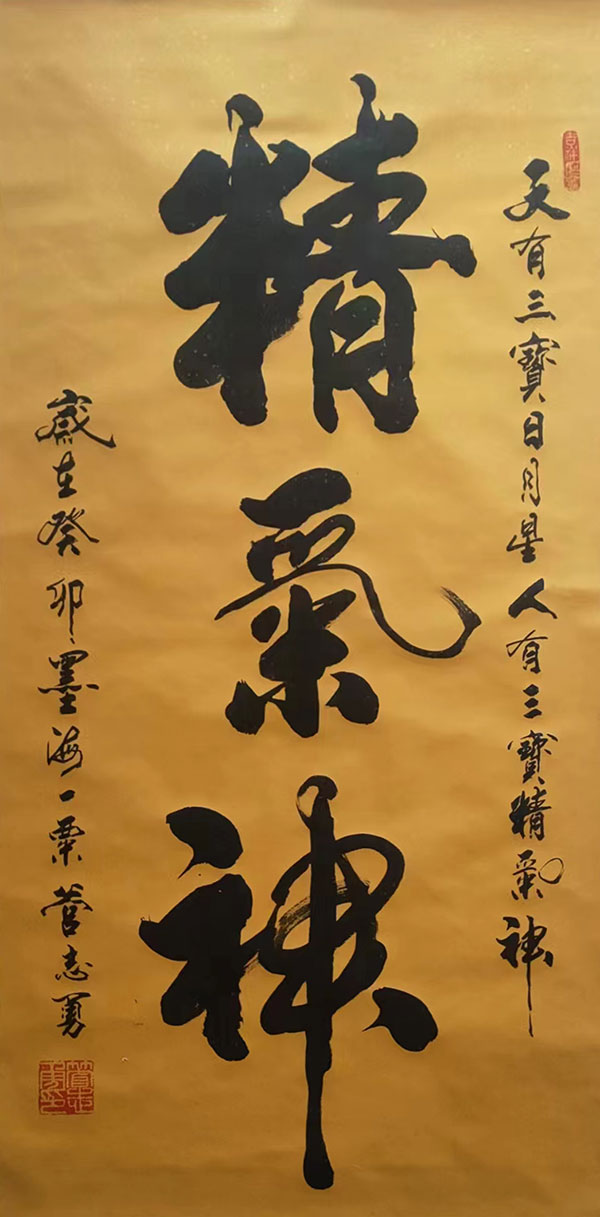 天有三寶日月星人有三寶精氣神
精氣神
歲在癸卯墨海一粟管志勇